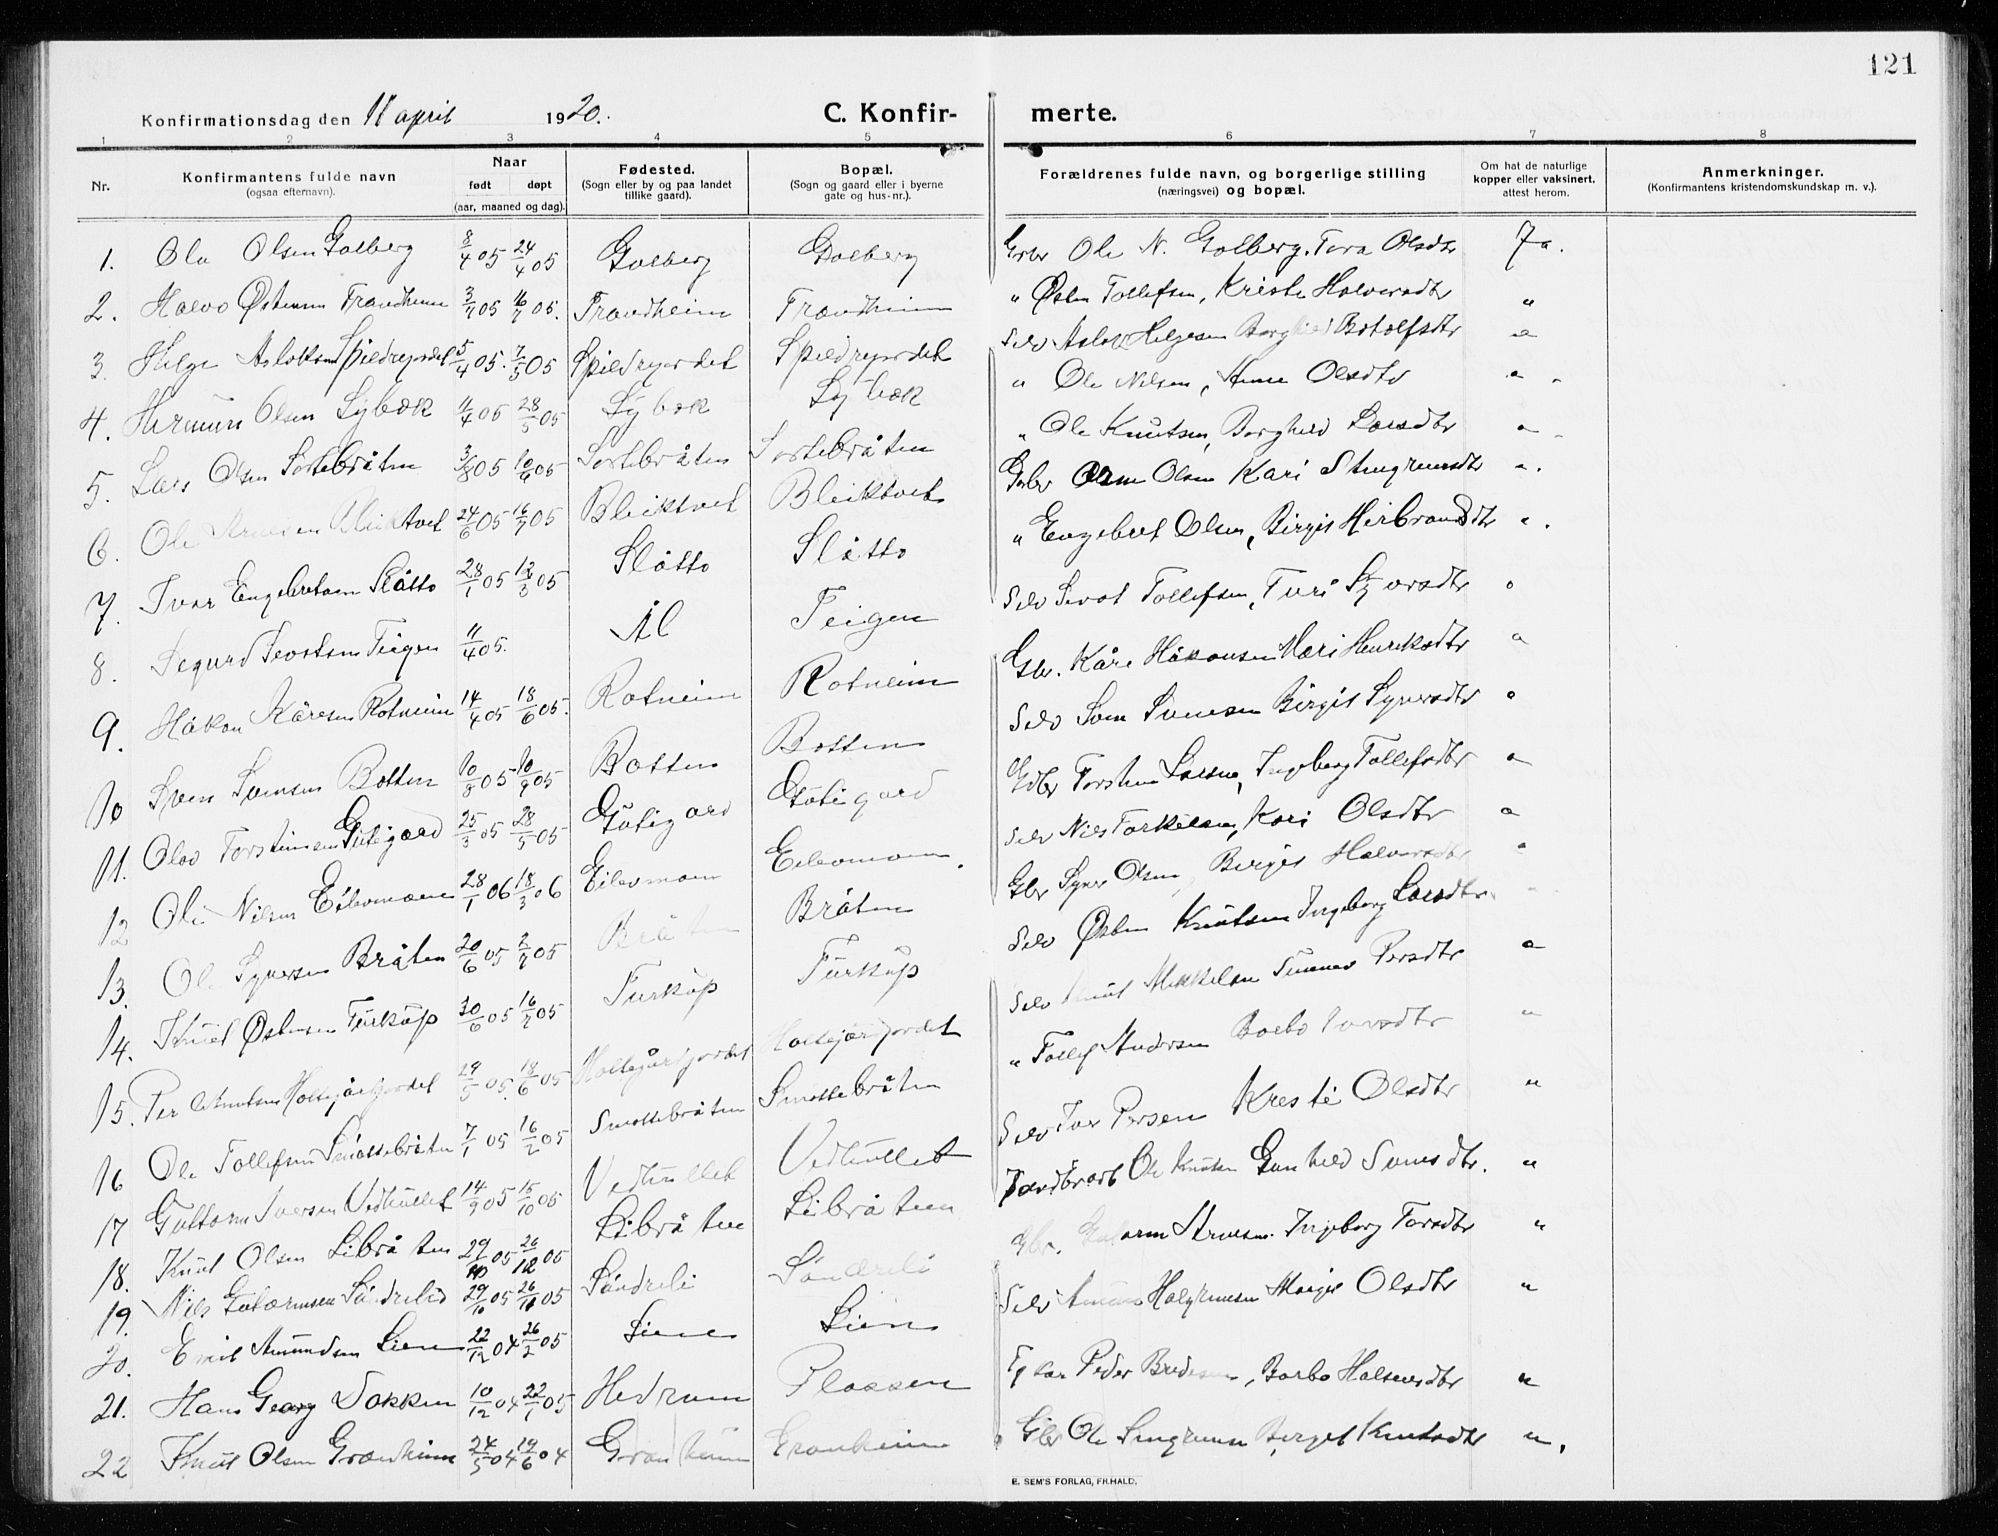 121
Konfirmationsdag den 11 april 1920. C. Konfirmerte.
1 2 3 4 5 6 7 8
Nr. Konfirmantens fulde navn (ogsaa efternavn). Naar født døpt (aar, maaned og dag). Fødested. (Sogn eller by og paa landet tillike gaard). Bopæl. (Sogn og gaard eller i byerne gate og hus-nr.). Forældrenes fulde navn, og borgerlige stilling (næringsvei) og bopæl. Om hat de naturlige kopper eller vaksinert, attest herom. Anmerkninger. (Konfirmantens kristendomskundskap m. v.).
1. Ola Olsen Golberg 8/4 05 24/4 05 Golberg Golberg Gbr Ole N. Golberg, Tora Olsdtr Ja.
2. Halvo Østensen Trondheim 3/7 05 16/7 05. Trondheim Trondheim " Østen Tollefsen, Kristi Halvorsdtr "
3. Helge Aslaksen Spildrejordet 5/4 05. 7/5 05 Spildrejordet Spildrejordet Selv Aslak Helgesen Borghild Botolfsdtr "
4. Herman Olsen Lybæk 11/4 05 28/5 05 Lybæk Lybæk " Ole Nilsen, Anne Olsdtr "
5. Lars Olsen Sortebråten 3/8 05 10/6 05 Sortebråten Sortebråten " Ole Knutsen, Borghild Larsdtr "
6. Ole Arnesen Bleiktvet 24/6 05 16/7 05 Bleiktvet Bleiktvet Gbr Arne Olsen Kari Stengrimsdtr "
7. Ivar Engebretsen Slåtto 28/1 05 12/3 05 Slåtto Slåtto " Engebret Olsen, Birgit Herbrandsdtr "
8. Segurd Sevatsen Teigen 11/4 05. Ål Teigen Selv Sevat Tollefsen, Turi Syversdtr "
9. Håkon Kåresen Rotneim 14/4 05 18/6 05. Rotneim Rotneim Gbr. Kåre Håkonsen Mari Henriksdtr "
10 Sven Svensen Botten 10/8 05 10/9 05 Botten Botten Selv Sven Svensen Birgit Syversdtr "
11. Olav Torstensen Gutigard 25/3 05 28/5 05 Gutigard Gutigard Gbr Torsten Larsen, Ingeborg Tollefsdtr "
12 Ole Nilsen Eilevmoen 28/1 06 18/3 06 Eilevmoen Eilevmoen. Selv Nils Torkelsen, Kari Olsdtr "
13. Ole Syversen Bråten 20/6 05 2/7 05 Bråten Bråten Gbr Syver Olsen, Birgit Halvorsdtr "
14. Knut Østensen Turkúp 30/6 05 16/7 05 Turkúp Turkúp Selv Østen Knutsen Ingeborg Larsdtr "
15. Per Knutsen 29/5 05. 18/6 05 Selv Knut Mikkelsen Persdtr "
16 Ole Tollefsen Smottebråten 7/1 05 16/2 05 Smottebråten Smottebråten " Tollef Andersen Barbo "
17 Guttorm Iversen Vedhullet 14/9 05 15/10 05 Vedhullet Vedhullet Selv Iver Persen Kristi Olsdtr "
18. Knut Olsen Libråten 29/10 05 26/12 05 Libråten Libråten Ole Knutsen Gunhild Svensdtr. "
19. Nils Gutormsen Sóndreli 29/10 05 26/11 05 Sóndreli Sóndreli Gbr. Gutorm Arnesen. Ingeborg Torsdtr "
20. Emil Amundsen Lien 22/12 04 26/2 05 Lien Lien Selv Amund Halgrimsen Margit Olsdtr "
21. Hans Georg Dokken 10/12 04 22/1 05 Hedrum Plassen Peder Bredesen, Barbo Halvorsdtr "
22 Knut Olsen Grondheim 24/5 04 19/6 04 Grondheim Grondheim Gbr Ole Sengrimsen Birgit Knutsdtr ".
E. SEM'S FORLAG, FR.HALD.